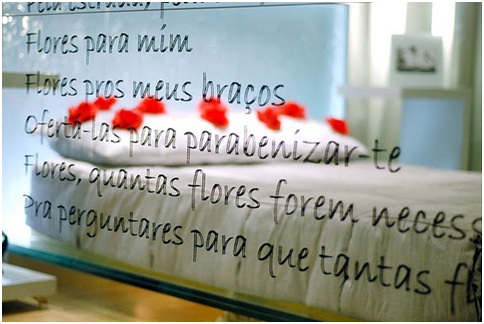 Pela estrada, pelo
Flores para mim
Flores pros meus braços
Ofertá-las para parabenizar-te
Flores, quantas flores forem
Pra perguntares para que tantas